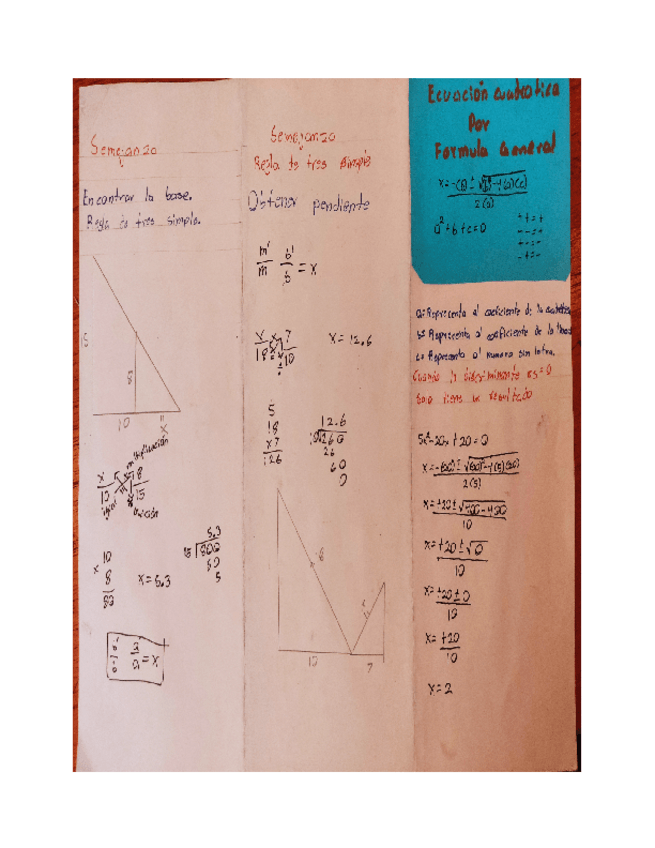 Semejanza
Encontrar la base.
Regla de tres simple.
15
8
10
x
x/10 8/15
multiplicación
igual
división
10
x 8
80
x = 5.3
5.3
15 800
50
5
= x
Semejanza
Regla de tres simple
Obtener pendiente
m'/m b'/b = x
x/18 7/10
x = 12.6
5
18
x7
126
12.6
10 1260
26
60
0
18
10
7
Ecuación cuadratica
Por
Formula General
x = -(b) ± √(b)²-4(a)(c)
2(a)
a²+b+c=0
+ + = +
- - = +
+ - = -
- + = -
a: Representa el coeficiente de la cuadratica
b: Representa el coeficiente de la lineal
c: Representa el numero sin letra.
Cuando la discriminante es = 0
Solo tiene un resultado
5x²-20x+20=0
x = -(-20) ± √(-20)²-4(5)(20)
2(5)
x = +20 ± √400-400
10
x = +20 ± √0
10
x = +20 ± 0
10
x = +20
10
x = 2